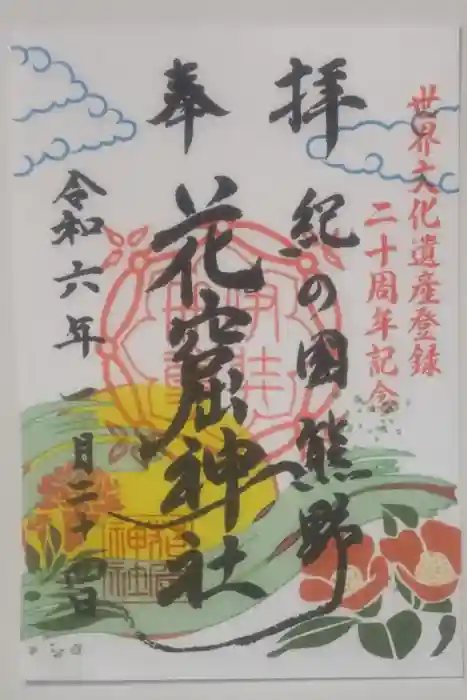 世界文化遺産登録
二十周年記念
奉拝
紀の国熊野
花窟神社
令和六年一月二十四日